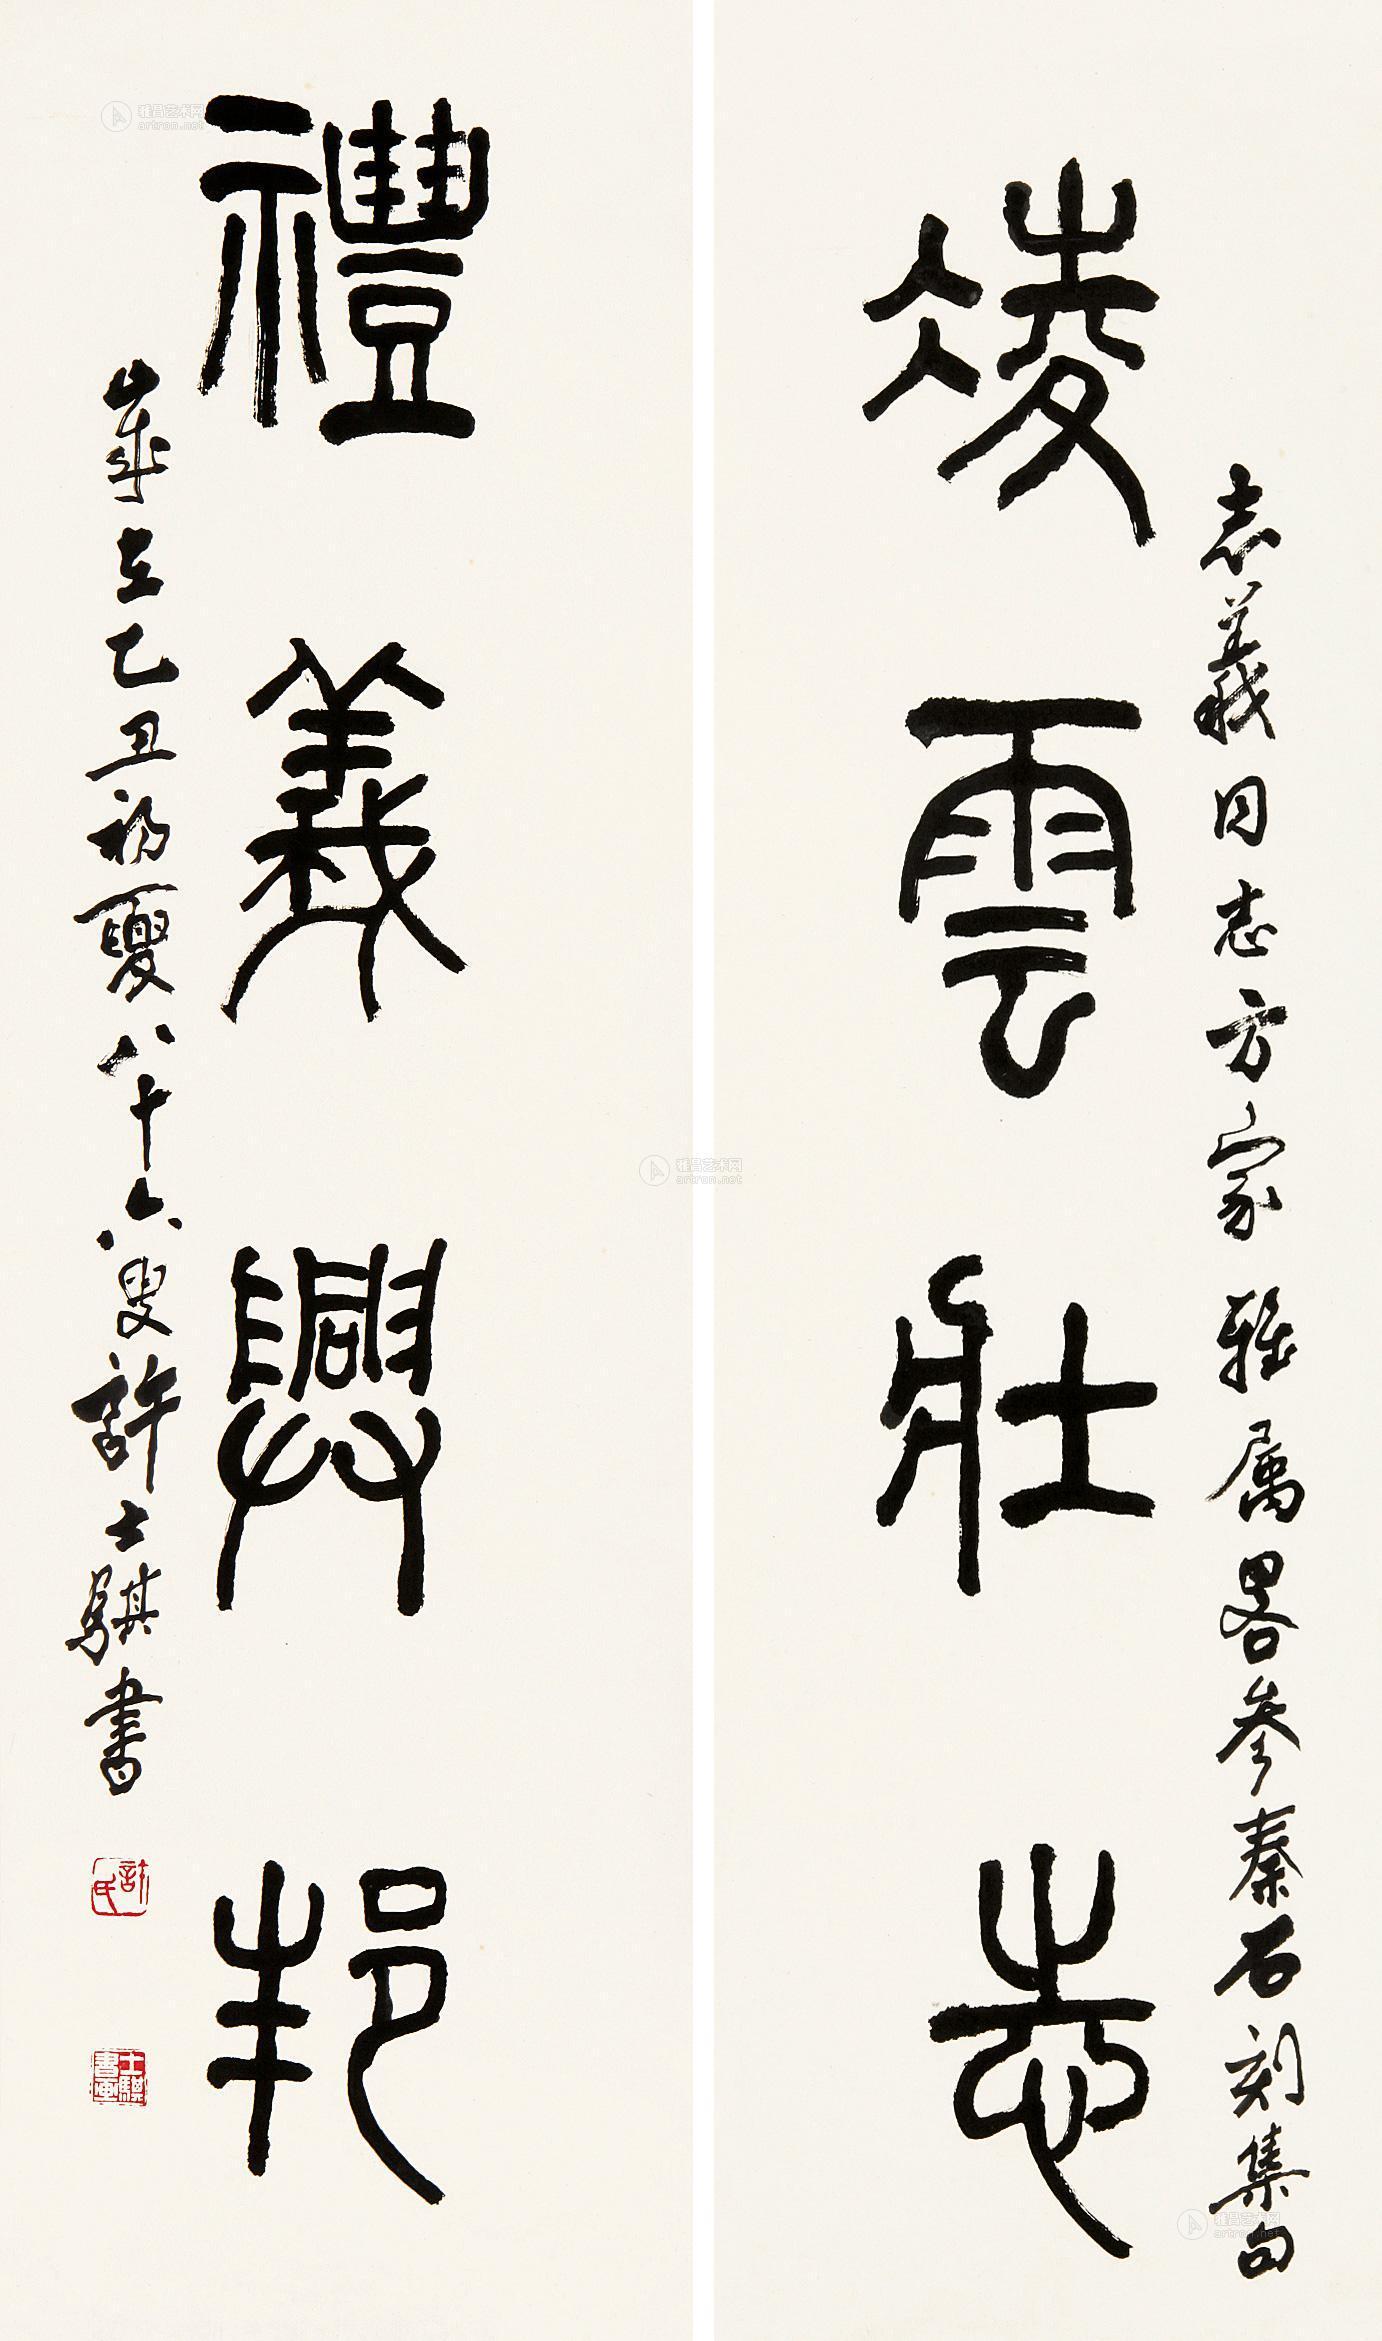 志義同志方家雅属畧參秦石刻集句
凌雲壯志
禮義興邦
歲在乙丑初夏八十六叟許士騏書
許氏
士騏書畫
雅昌艺术网
artron.net
雅昌艺术网
artron.net
雅昌艺术网
artron.net